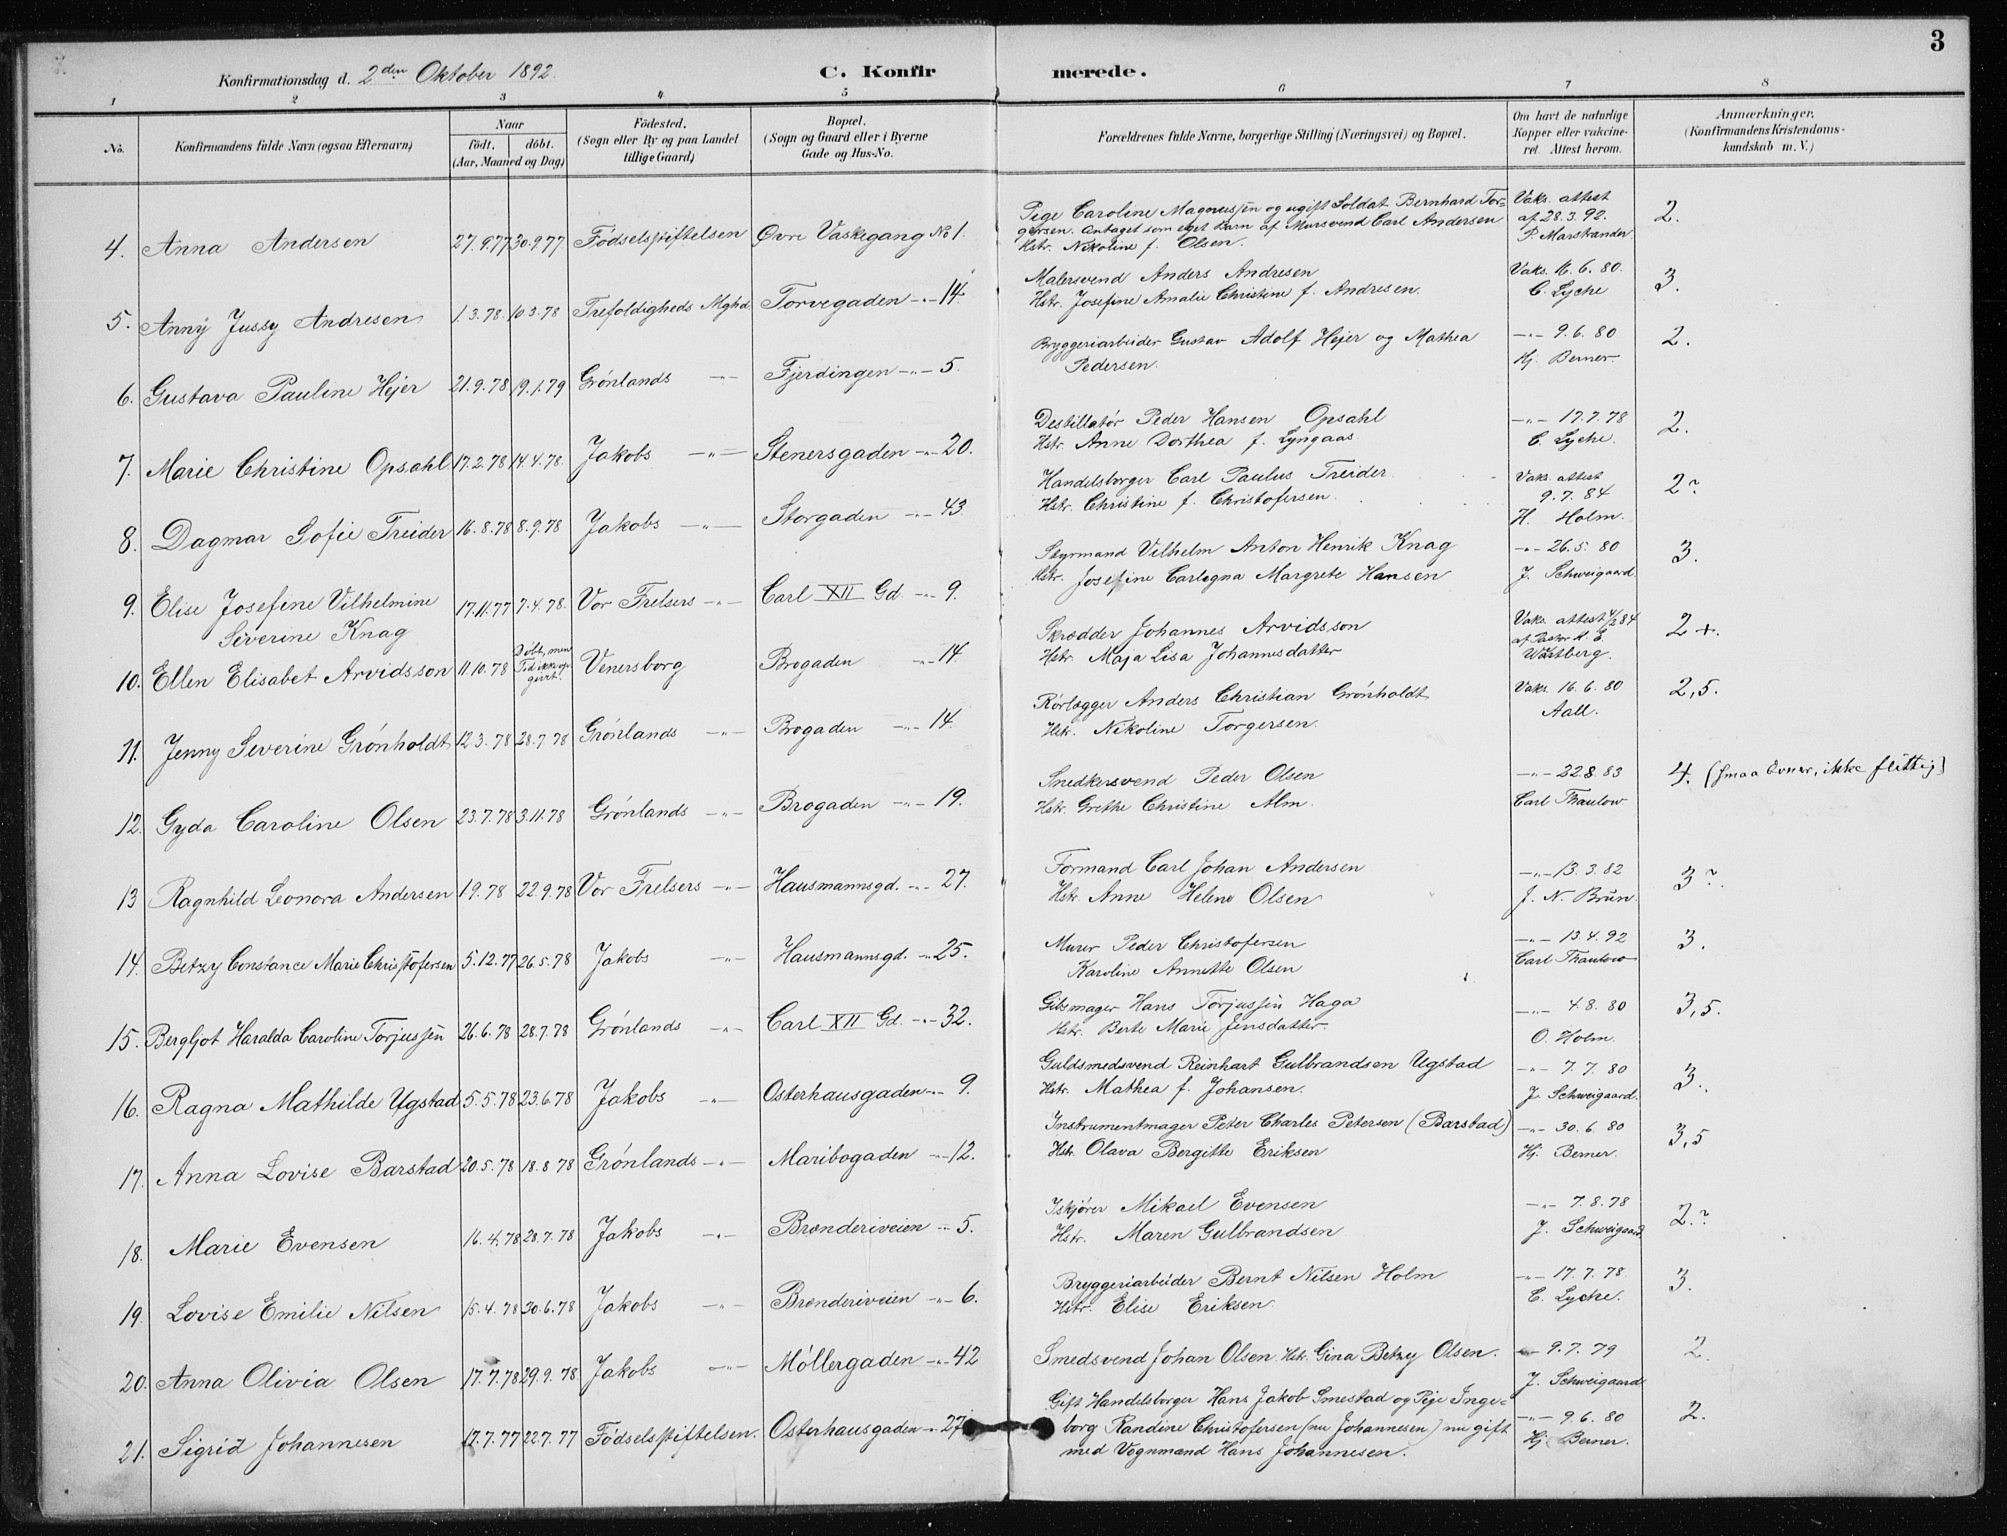 3
Konfirmationsdag d. 2den Oktober 1892.
C. Konfirmerede.
1 2 3 4 5 6 7 8
No. | Konfirmandens fulde Navn (ogsaa Efternavn) | Naar født. døbt. (Aar, Maaned og Dag) | Fødested. (Sogn eller By og paa Landet tillige Gaard) | Bopæl. (Sogn og Gaard eller i Byerne Gade og Hus-No. | Forældrenes fulde Navne, borgerlige Stilling (Næringsvei) og Bopæl. | Om havt de naturlige Kopper eller vakcineret. Attest herom. | Anmærkninger. (Konfirmandens Kristendomskundskab m. V.)
4. Anna Andersen | 27.9.77 | 30.9.77 | Fødselsstiftelsen | Øvre Vaskegang No 1. | Pige Caroline Magnussen og ugift Soldat Bernhard Torgersen. Antaget som eget Barn af Mursvend Carl Andersen Hstr. Nikoline f. Olsen. | Vaks. attest af 28.3.92. P. Marstrander | 2.
5. Anny Jussy Andresen | 1.3.78 | 10.3.78 | Trefoldigheds Mghd. | Torvegaden -"- 14 | Malersvend Anders Andresen Hstr. Josefine Amalie Christine f. Andresen. | Vaks. 16.6.80. C. Lyche | 3.
6. Gustava Pauline Hejer | 21.9.78 | 19.1.79 | Grønlands -"- | Fjerdingen -"- 5. | Bryggeriarbeider Gustav Adolf Hejer og Mathea Pedersen. | -"- 9.6.80 Hj. Berner. | 2.
7. Marie Christine Opsahl | 17.2.78 | 14.4.78. | Jakobs -"- | Stenersgaden -"- 20. | Destillatør Peder Hansen Opsahl Hstr. Anne Dorthea f. Lyngaas. | -"- 17.7.78 C. Lyche. | 2.
8. Dagmar Sofie Treider | 16.8.78 | 8.9.78 | Jakobs -"- | Storgaden -"- 43 | Handelsborger Carl Paulus Treider Hstr. Christine f. Christofersen. | Vaks. attest 9.7.84 H. Holm. | 2?
9. Elise Josefine Vilhelmine Severine Knag | 17.11.77 | 7.4.78. | Vor Frelsers -"- | Carl XII Gd. -"- 9. | Styrmand Vilhelm Anton Henrik Knag Hstr. Josefine Carlogna Margrete Hansen | -"- 26.5.80 J. Schweigaard. | 3.
10. Ellen Elisabet Arvidsson | 11.10.78 | Døbt, men Tid ikke opgivet! | Venersborg | Brogaden -"- 14. | Skrædder Johannes Arvidsson Hstr. Maja Lisa Johannesdatter | Vaks. attest 4/2 84 af Pastor K. E. Wästberg. | 2+.
11. Jenny Severine Grønholdt | 12.3.78 | 28.7.78 | Grønlands -"- | Brogaden -"- 14. | Rørlægger Anders Christian Grønholdt Hstr. Nikoline Torgersen. | Vaks. 16.6.80 Aall. | 2,5.
12. Gyda Caroline Olsen | 23.7.78 | 3.11.78 | Grønlands -"- | Brogaden -"- 19. | Snedkersvend Peder Olsen Hstr. Grethe Christine Alm. | -"- 22.8.83 Carl Thaulow | 4. (smaa Evner, ikke flittig)
13 Ragnhild Leonora Andersen | 1 9.78 | 22.9.78 | Vor Frelsers -"- | Hausmannsgd. -"- 27. | Formand Carl Johan Andersen Hstr. Anne Helene Olsen | -"- 13.3.82 J. N. Brun. | 3?
14. Betzy Constance Marie Christofersen | 5.12.77 | 26.5.78 | Jakobs -"- | Hausmannsgd. -"- 25. | Murer Peder Christofersen Karoline Annette Olsen | -"- 13.4.92 Carl Thaulow | 3.
15. Bergljot Haralda Caroline Torjussen | 26.6.78 | 28.7.78 | Grønlands -"- | Carl XII Gd. -"- 32. | Gibsmager Hans Torjussen Haga Hstr. Berte Marie Jensdatter. | -"- 4.8.80 O. Holm. | 3,5.
16. Ragna Mathilde Ugstad | 5.5.78 | 23.6.78 | Jakobs -"- | Osterhausgaden -"- 9. | Guldsmedsvend Reinhart Gulbrandsen Ugstad Hstr. Mathea f. Johansen. | -"- 7.7.80 J. Schweigaard. | 3.
17. Anna Lovise Barstad | 20.5.78 | 18.8.78 | Grønlands -"- | Maribogaden -"- 12. | Instrumentmager Peter Charles Petersen (Barstad) Hstr. Olava Bergitte Eriksen | -"- 30.6.80 Hj. Berner. | 3,5
18. Marie Evensen | 16.4.78 | 28.7.78 | Jakobs -"- | Brænderiveien -"- 5. | Iskjører Mikael Evensen Hstr. Maren Gulbrandsen | -"- 7.8.78 J. Schweigaard | 2.?
19. Lovise Emilie Nilsen | 15.4.78 | 30.6.78 | Jakobs -"- | Brænderiveien -"- 6. | Bryggeriarbeider Bernt Nilsen Holm Hstr. Elise Eriksen | -"- 17.7.78. C. Lyche. | 3.
20. Anna Olivia Olsen | 17.7.78 | 29.9.78. | Jakobs -"- | Møllergaden -"- 42 | Smedsvend Johan Olsen Hstr. Gina Betzy Olsen. | -"- 9.7.79 J. Schweigaard | 2.
21. Sigrid Johannesen | 17.7.77 | 22.7.77 | Fødselsstiftelsen. | Osterhausgaden -"- 27 | Gift Handelsborger Hans Jakob Smestad og Pige Ingeborg Randine Christofersen (nu Johannesen) nu gift med Vognmand Hans Johannesen. | -"- 9.6.80 Hj. Berner. | 2.